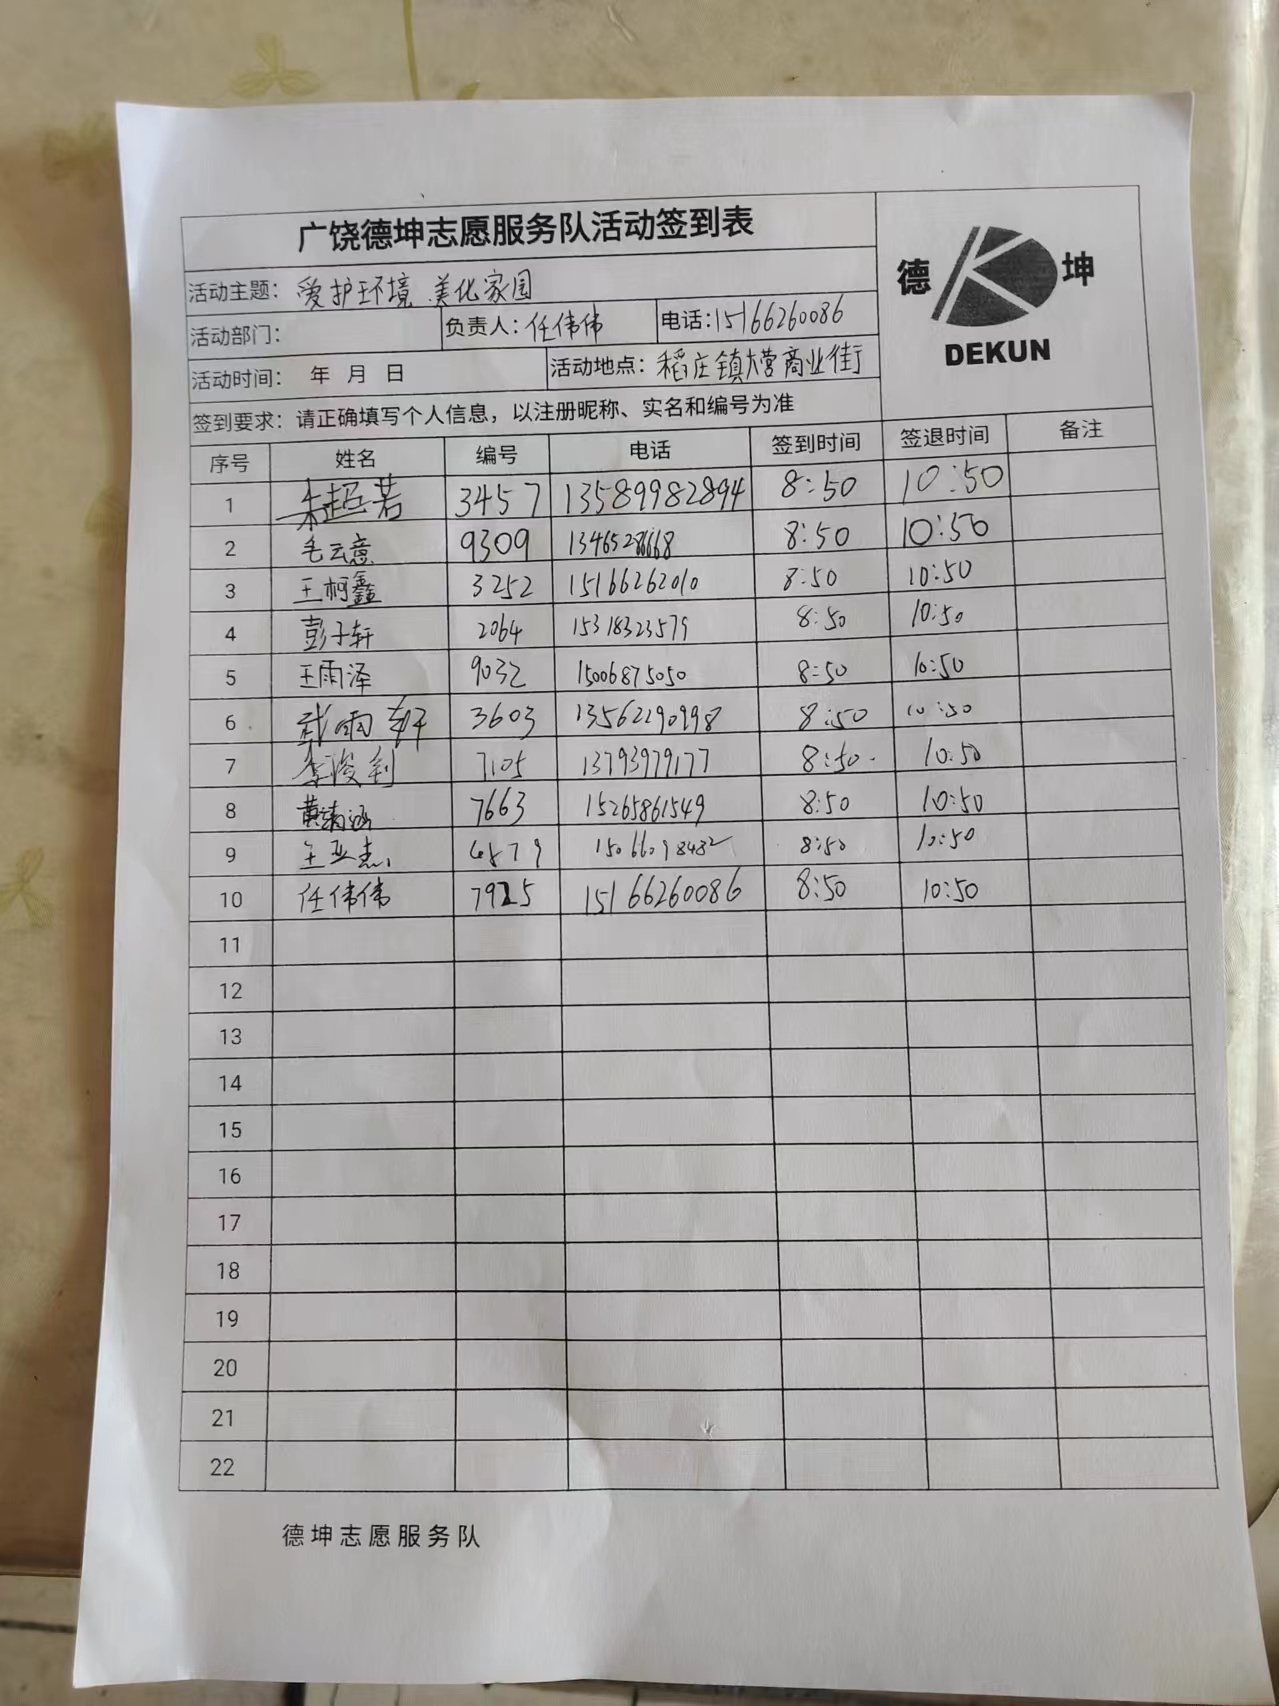 广饶德坤志愿服务队活动签到表
德 坤
DEKUN
活动主题：爱护环境 美化家园
活动部门： 负责人：任伟伟 电话：15166260086
活动时间： 年 月 日 活动地点：稻庄镇大营商业街
签到要求：请正确填写个人信息，以注册昵称、实名和编号为准
序号 姓名 编号 电话 签到时间 签退时间 备注
1 朱超若 3457 13589982894 8:50 10:50
2 毛云意 9309 13465286668 8:50 10:50
3 王柯鑫 3252 15166262010 8:50 10:50
4 彭子轩 2064 15318323579 8:50 10:50
5 王雨泽 9032 15006875050 8:50 10:50
6 武雨轩 3603 13562190998 8:50 10:50
7 李俊钊 7105 13793979177 8:50 10:50
8 7663 15265861549 8:50 10:50
9 8:50 10:50
10 任伟伟 7925 15166260086 8:50 10:50
11
12
13
14
15
16
17
18
19
20
21
22
德坤志愿服务队